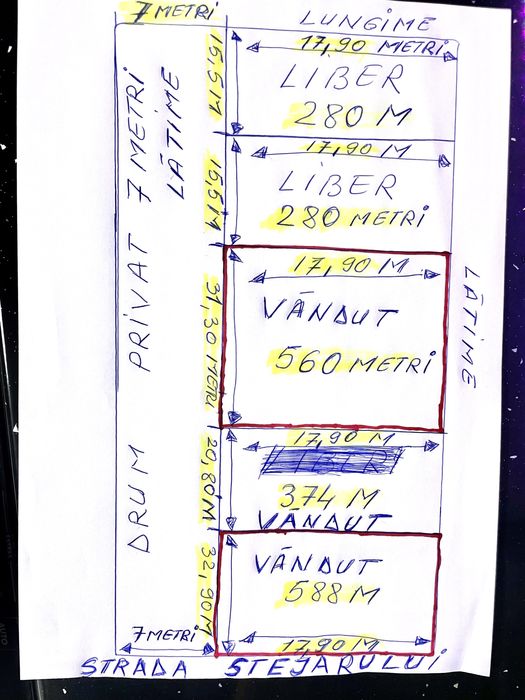 7 METRI
LUNGIME
17,90 METRI
15,5 M
LIBER
280 M
DRUM PRIVAT 7 METRI
LĂTIME
17,90 M
15,5 M
LIBER
280 METRI
17,90 M
31,30 METRI
VÂNDUT
560 METRI
LĂTIME
17,90 M
20,80 M
LIBER
374 M
VÂNDUT
32,90 M
VÂNDUT
588 M
7 METRI
17,90 M
STRADA STEJARULUI